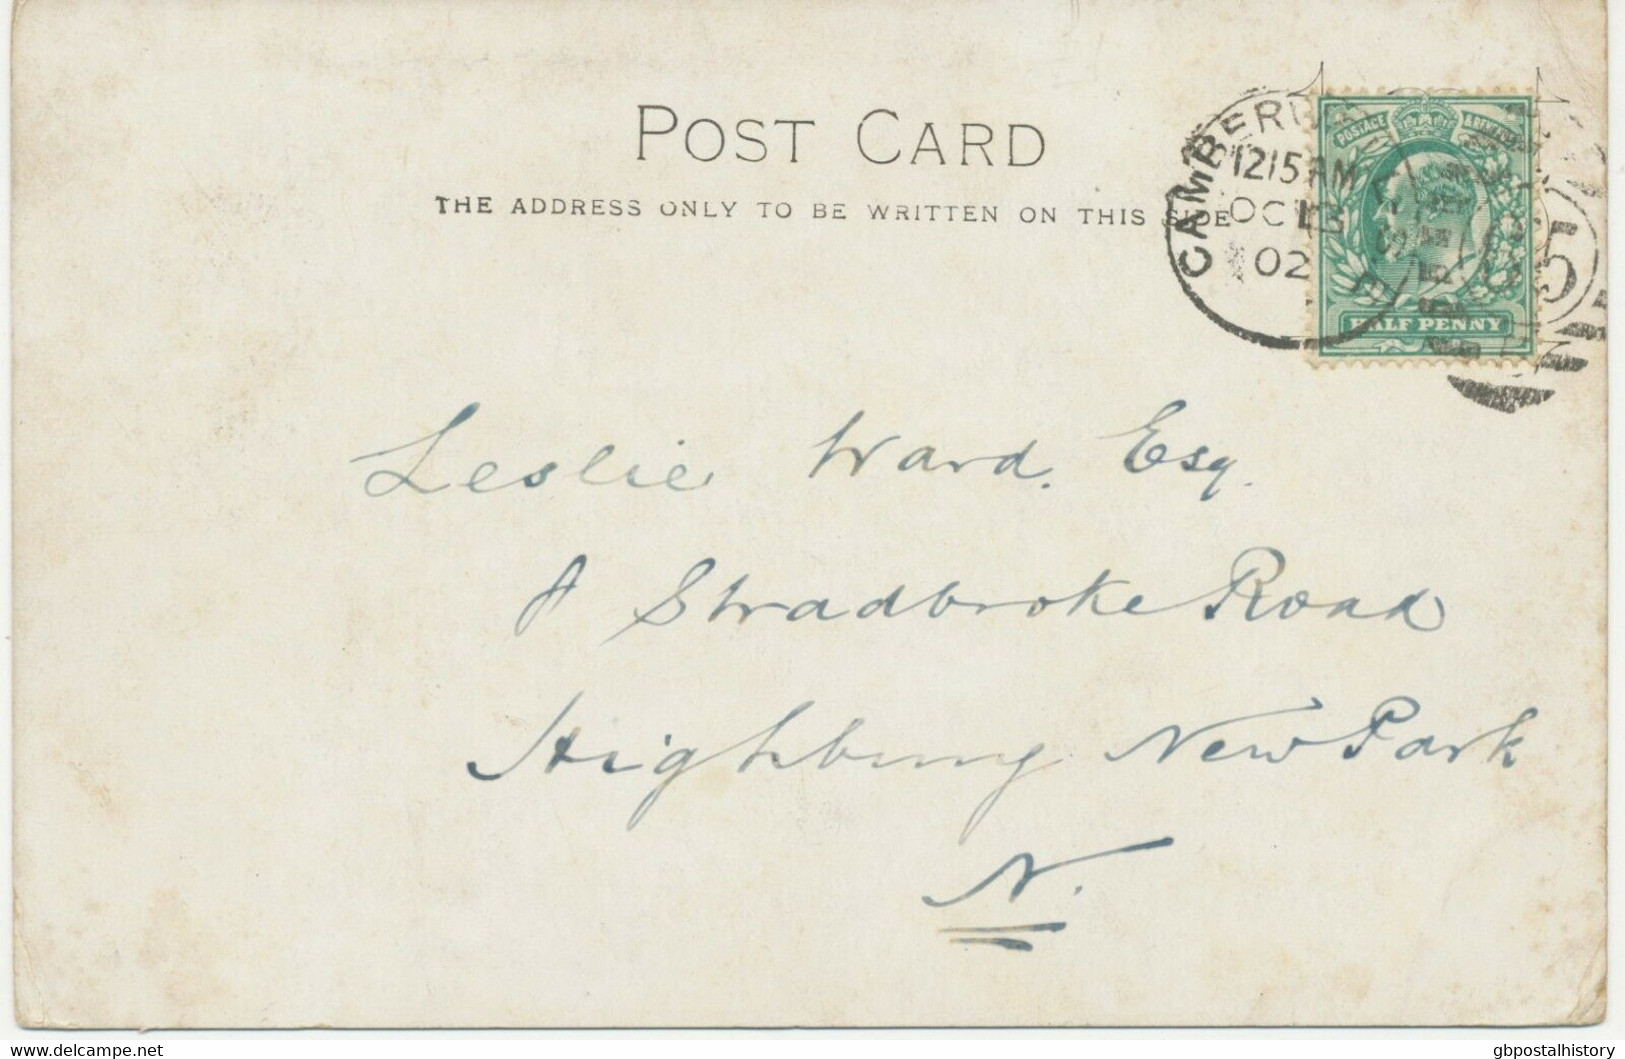 POST CARD
THE ADDRESS ONLY TO BE WRITTEN ON THIS SIDE
CAMBERWELL
1215 AM
OC 13
02
POSTAGE & REVENUE
HALF PENNY
Leslie Ward. Esq.
8 Stradbroke Road
Highbury New Park
N.
delcampe.net
gbpostalhistory